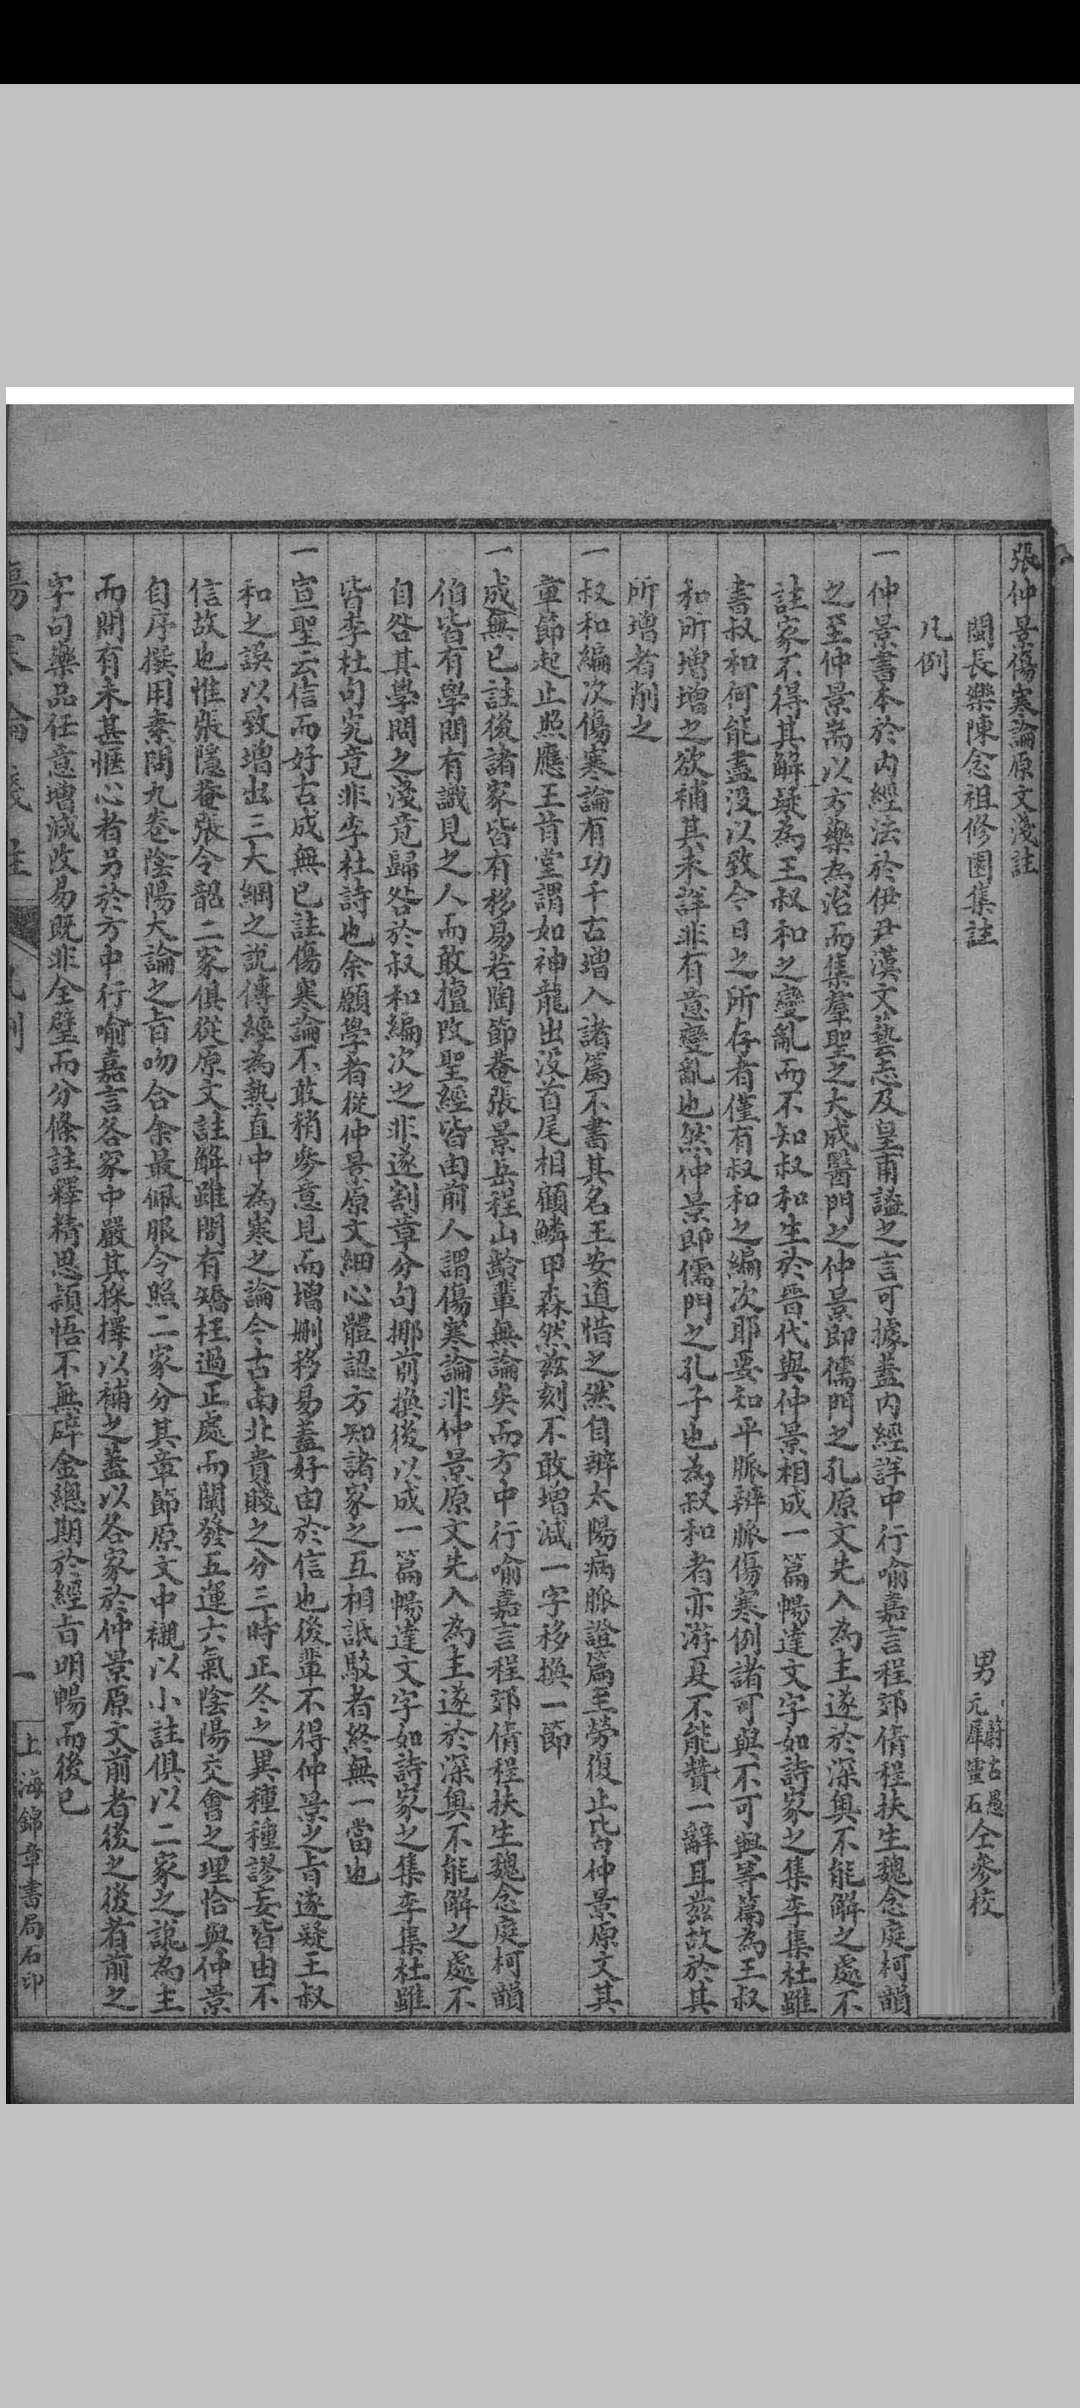 張仲景傷寒論原文淺註
閩長樂陳念祖修園集註
男 元犀靈石 蔚古愚 仝參校
凡例
一仲景書本於內經法於伊尹漢文藝志及皇甫謐之言可據蓋內經詳中行喻嘉言程郊倩程扶生魏念庭柯韻
之至仲景耑以方藥為治而集羣聖之大成醫門之仲景即儒門之孔原文先入為主遂於深奧不能解之處不
註家不得其解疑為王叔和之變亂而不知叔和生於晉代與仲景相成一篇暢達文字如詩家之集李集杜雖
書叔和何能盡沒以致今日之所存者僅有叔和之編次耶要知平脈辨脈傷寒例諸可與不可與等篇為王叔
和所增增之欲補其未詳非有意變亂也然仲景即儒門之孔子也為叔和者亦游夏不能贊一辭耳茲故於其
所增者削之
一叔和編次傷寒論有功千古增入諸篇不書其名王安道惜之然自辨太陽病脈證篇至勞復止皆仲景原文其
章節起止照應王肯堂謂如神龍出沒首尾相顧鱗甲森然茲刻不敢增減一字移換一節
一成無已註後諸家皆有移易若陶節菴張景岳程山齡輩無論矣而方中行喻嘉言程郊倩程扶生魏念庭柯韻
伯皆有學問有識見之人而敢擅改聖經皆由前人謂傷寒論非仲景原文先入為主遂於深奧不能解之處不
自咎其學問之淺竟歸咎於叔和編次之非遂割章分句挪前換後以成一篇暢達文字如詩家之集李集杜雖
皆李杜句究竟非李杜詩也余願學者從仲景原文細心體認方知諸家之互相詆駁者終無一當也
一宣聖云信而好古成無已註傷寒論不敢稍參意見而增刪移易蓋好由於信也後輩不得仲景之旨遂疑王叔
和之誤以致增出三大綱之說傳經為熱直中為寒之論今古南北貴賤之分三時正冬之異種種謬妄皆由不
信故也惟張隱菴張令韶二家俱從原文註解雖間有矯枉過正處而闡發五運六氣陰陽交會之理恰與仲景
自序撰用素問九卷陰陽大論之旨吻合余最佩服今照二家分其章節原文中襯以小註俱以二家之說為主
而間有未甚愜心者另於方中行喻嘉言各家中嚴其採擇以補之蓋以各家於仲景原文前者後之後者前之
字句藥品任意增減改易既非全璧而分條註釋精思穎悟不無碎金總期於經旨明暢而後已
傷寒論淺註 凡例 一 上海錦章書局石印